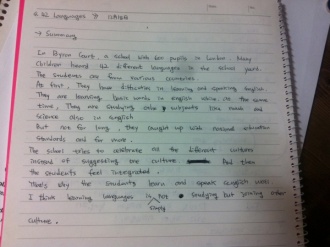 42 languages
→ Summary
In Byron Court, a school with ten pupils in London. Many
Children heard 42 different languages in the school yard.
The students are from various countries.
At first, They have difficulties in learning and speaking English
They are learning basic words in english while at the same
time, They are studying other subjects like math and
science also in English
But not for long, they caught up with national education
standards and far more.
The school tries to celebrate all the different cultures
instead of suggesting one culture. And then
the students feel integrated.
That's why the students learn and speak English well
I think learning languages is not simply studying but joining other
culture.